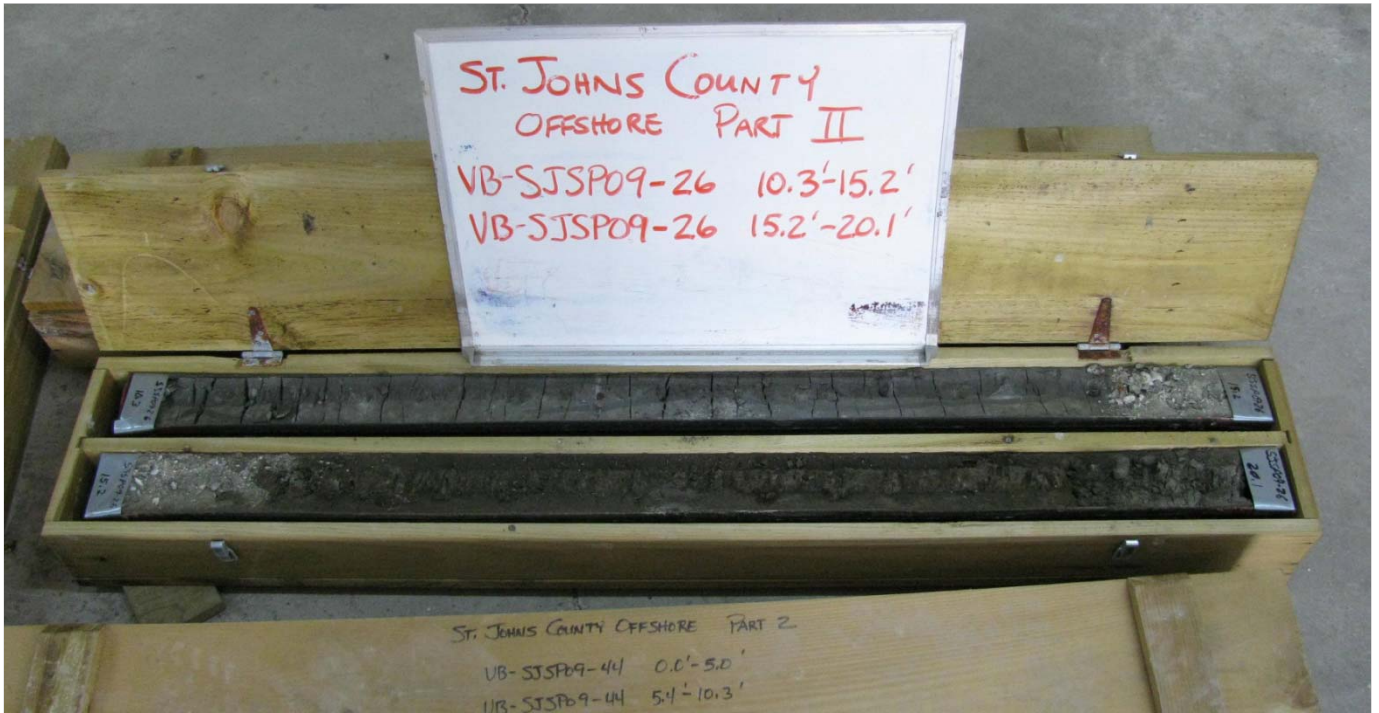 ST. JOHNS COUNTY
OFFSHORE PART II
VB-SJSP09-26 10.3'-15.2'
VB-SJSP09-26 15.2'-20.1'
15.2
SJSP09-26
20.1
ST. JOHNS COUNTY OFFSHORE PART 2
VB-SJSP09-44 0.0'-5.0'
VB-SJSP09-44 5.4'-10.3'